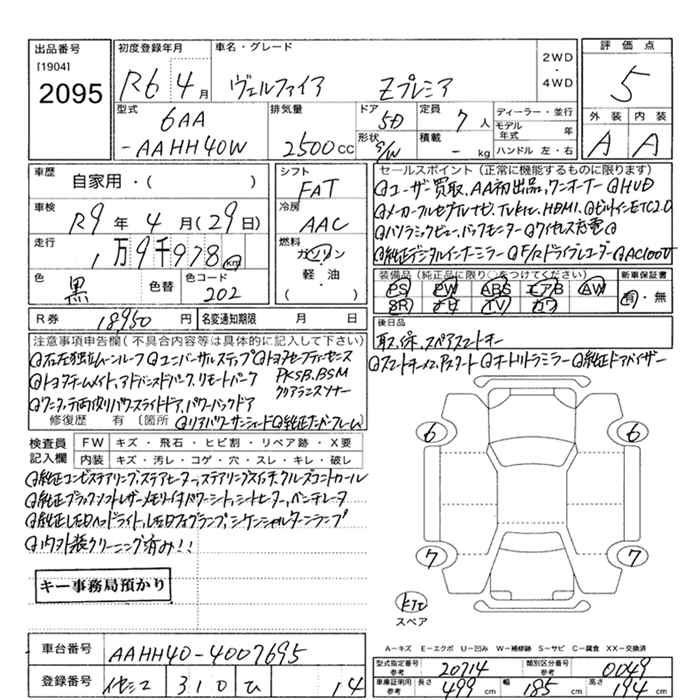 出品番号 初度登録年月 車名・グレード 2WD・4WD 評価点
[1904]
2095 R6 4月 ヴェルファイア Zプレミア 5
型式 排気量 ドア 定員 ディーラー・並行 外装 内装
6AA 5D 7人 モデル年式 年
-AAHH40W 2500cc 形状 S/W 積載 - kg ハンドル 左・右 A A
車歴 自家用・( ) シフト FAT
セールスポイント(正常に機能するものに限ります)
@ユーザー買取、AA初出品、ワンオーナー @HUD
@メーカーフルセグTVナビ、TVkit、HDMI、@ビルトインETC2.0
@パノラミックビュー、バックモニター @ワイヤレス充電@
@純正デジタルインナーミラー @F/Rドライブレコーダー @AC100V
車検 R9年4月(29日) 冷房 AAC
走行 1万9千978km 燃料 ガソリン・軽・油 ( )
色 黒 色替 色コード 202
装備品(純正品に限り○をつけてください) 新車保証書
PS PW ABS エアB AW 有・無
SR ナビ TV カワ
R券 18950円 名変通知期限 月 日
後日品
取、保、スペアスマートキー
@スマートキー×2、Pスタート @オートトリトラミラー @純正ドアバイザー
注意事項申告欄(不具合内容等は具体的に記入して下さい)
@左右独立ムーンルーフ @ユニバーサルステップ @トヨタセーフティセンス
@トヨタチームメイト、アドバンスドパーク、リモートパーク PKSB、BSM クリアランスソナー
@ワンタッチ両側パワースライドドア、パワーバックドア
修復歴 有 〔箇所 @リアパワーサンシェード @純正ナンバーフレーム〕
検査員記入欄 FW キズ・飛石・ヒビ割・リペア跡・X要
内装 キズ・汚レ・コゲ・穴・スレ・キレ・破レ
@純正コンビステアリング、ステアヒーター、ステアリングスイッチ、クルーズコントロール
@純正ブラックソフトレザーメモリー付きパワーシート、シートヒーター、ベンチレータ
@純正LEDヘッドライト、LEDフォグランプ、シーケンシャルターンランプ
@内外装クリーニング済み!!
6 6
7 7
キー事務局預かり
スペア
A−キズ E−エクボ U−凹み W−補修跡 S−サビ C−腐食 XX−交換済
車台番号 AAHH40-4007695
型式指定番号 参考 20714 類別区分番号 参考 0049
登録番号 310 ひ 14
車庫証明用 参考 長さ 499cm 幅 185cm 高さ 194cm